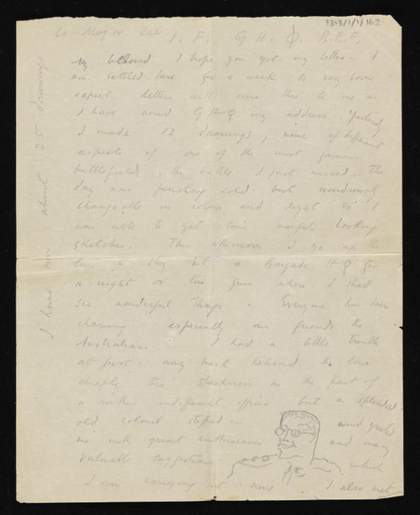 I. F. G. H. Q. B. E. F.
my beloved I hope you got my letter. I
am settled here for a week so very soon
expect letters will come thro to me as
I have wired GHQ my address. Yesterday
I made 12 drawings, some of different
aspects of one of the most famous
battlefields, the battle I just missed. The
day was piercing cold but wonderfully
changeable in colour and light so I
was able to get some
sketches. This afternoon I go up to
to stay at a Brigade HQ for
a night or two from where I shall
see wonderful things. Everyone has been
charming especially our friends the
Australians. I had a little trouble
at first way back behind the line
simply the slackness on the part of
a rather indifferent officer but a splendid
old colonel stepped in and
me with great enthusiasm and many
valuable suggestions which
I am carrying out now. I also met
I have now about 25 drawings